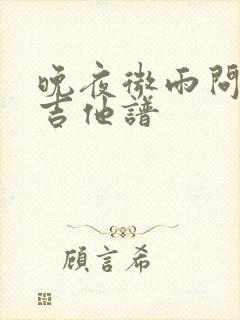 晚夜微雨問
吉他譜
顧言希